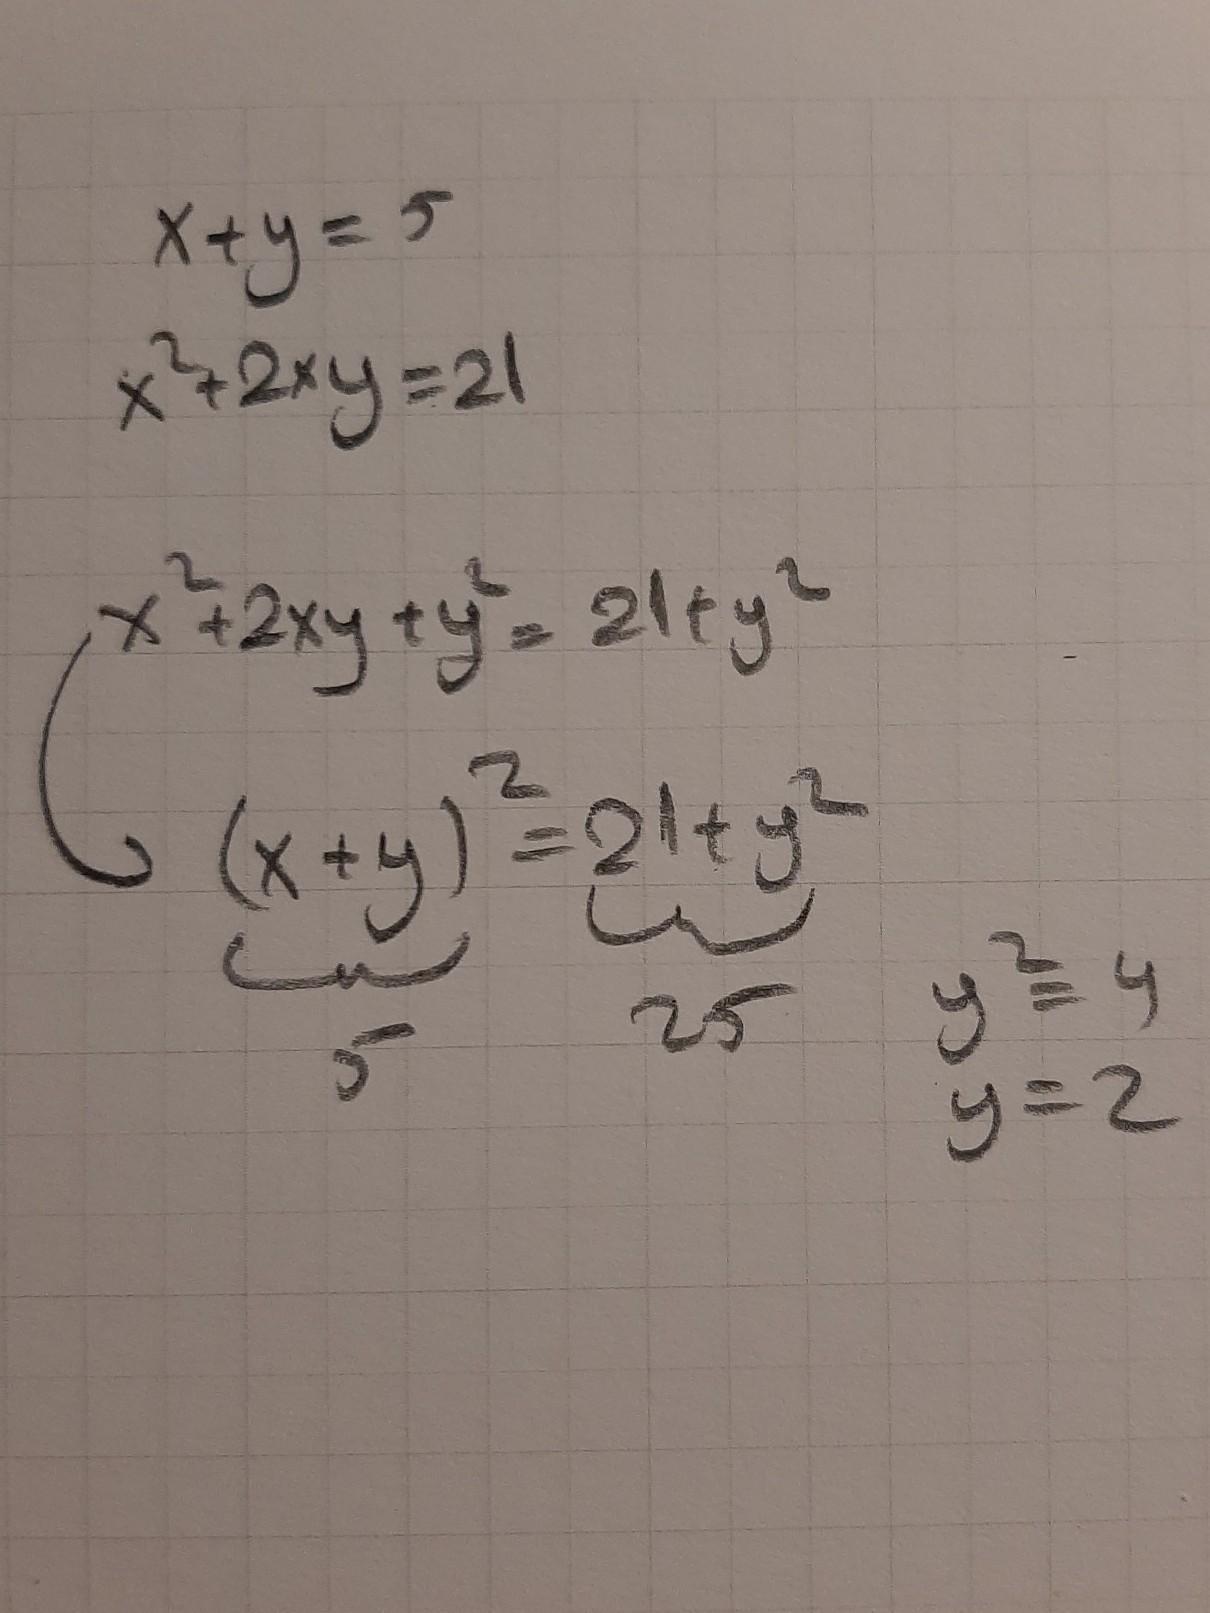 x+y=5
x²+2xy=21
x²+2xy+y²=21+y²
(x+y)²=21+y²
5 25
y²=4
y=2